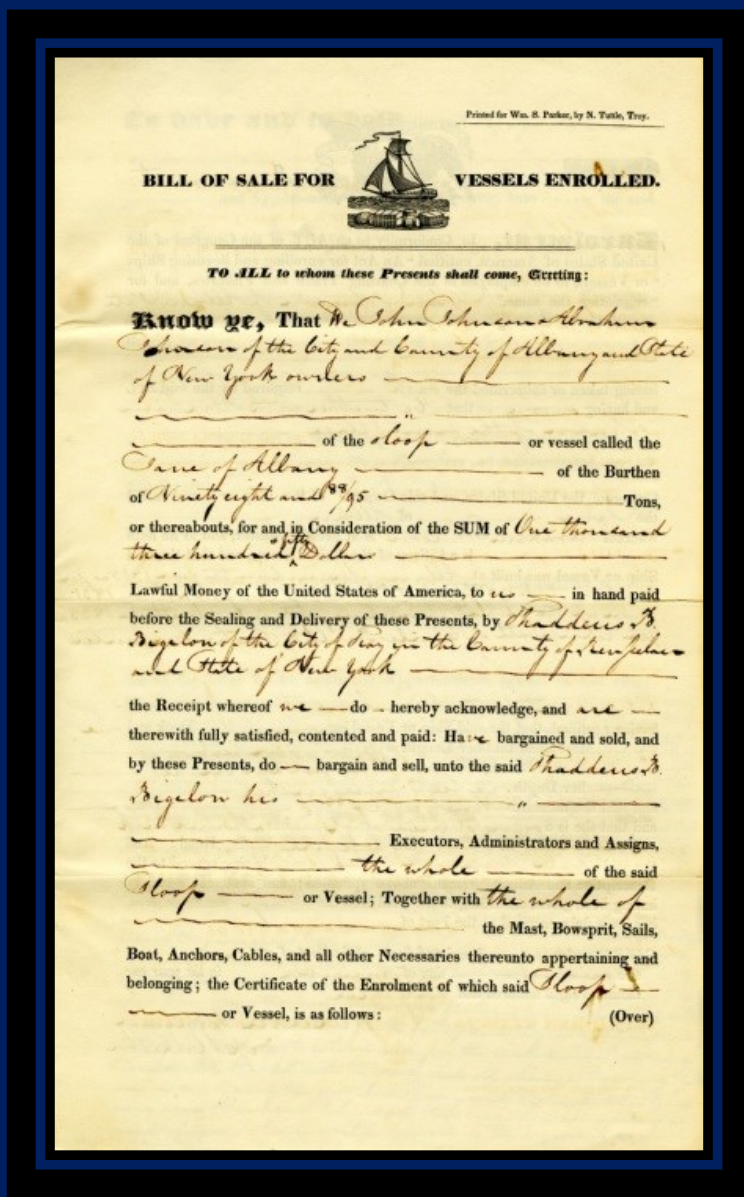 Printed for Wm. S. Parker, by N. Tuttle, Troy.
BILL OF SALE FOR VESSELS ENROLLED.
TO ALL to whom these Presents shall come, Greeting:
Know ye, That We John Johnson & Abraham
Johnson of the City and County of Albany and State
of New York owners
"
of the sloop or vessel called the
Jane of Albany of the Burthen
of Ninety eight and 88/95 Tons,
or thereabouts, for and in Consideration of the SUM of One thousand
three hundred & fifty Dollars
Lawful Money of the United States of America, to us in hand paid
before the Sealing and Delivery of these Presents, by Thaddeus B.
Bigelow of the City of Troy in the County of Rensselaer
and State of New York
the Receipt whereof we do hereby acknowledge, and are
therewith fully satisfied, contented and paid: Have bargained and sold, and
by these Presents, do bargain and sell, unto the said Thaddeus B.
Bigelow his "
Executors, Administrators and Assigns,
the whole of the said
Sloop or Vessel; Together with the whole of
the Mast, Bowsprit, Sails,
Boat, Anchors, Cables, and all other Necessaries thereunto appertaining and
belonging; the Certificate of the Enrolment of which said Sloop
or Vessel, is as follows: (Over)